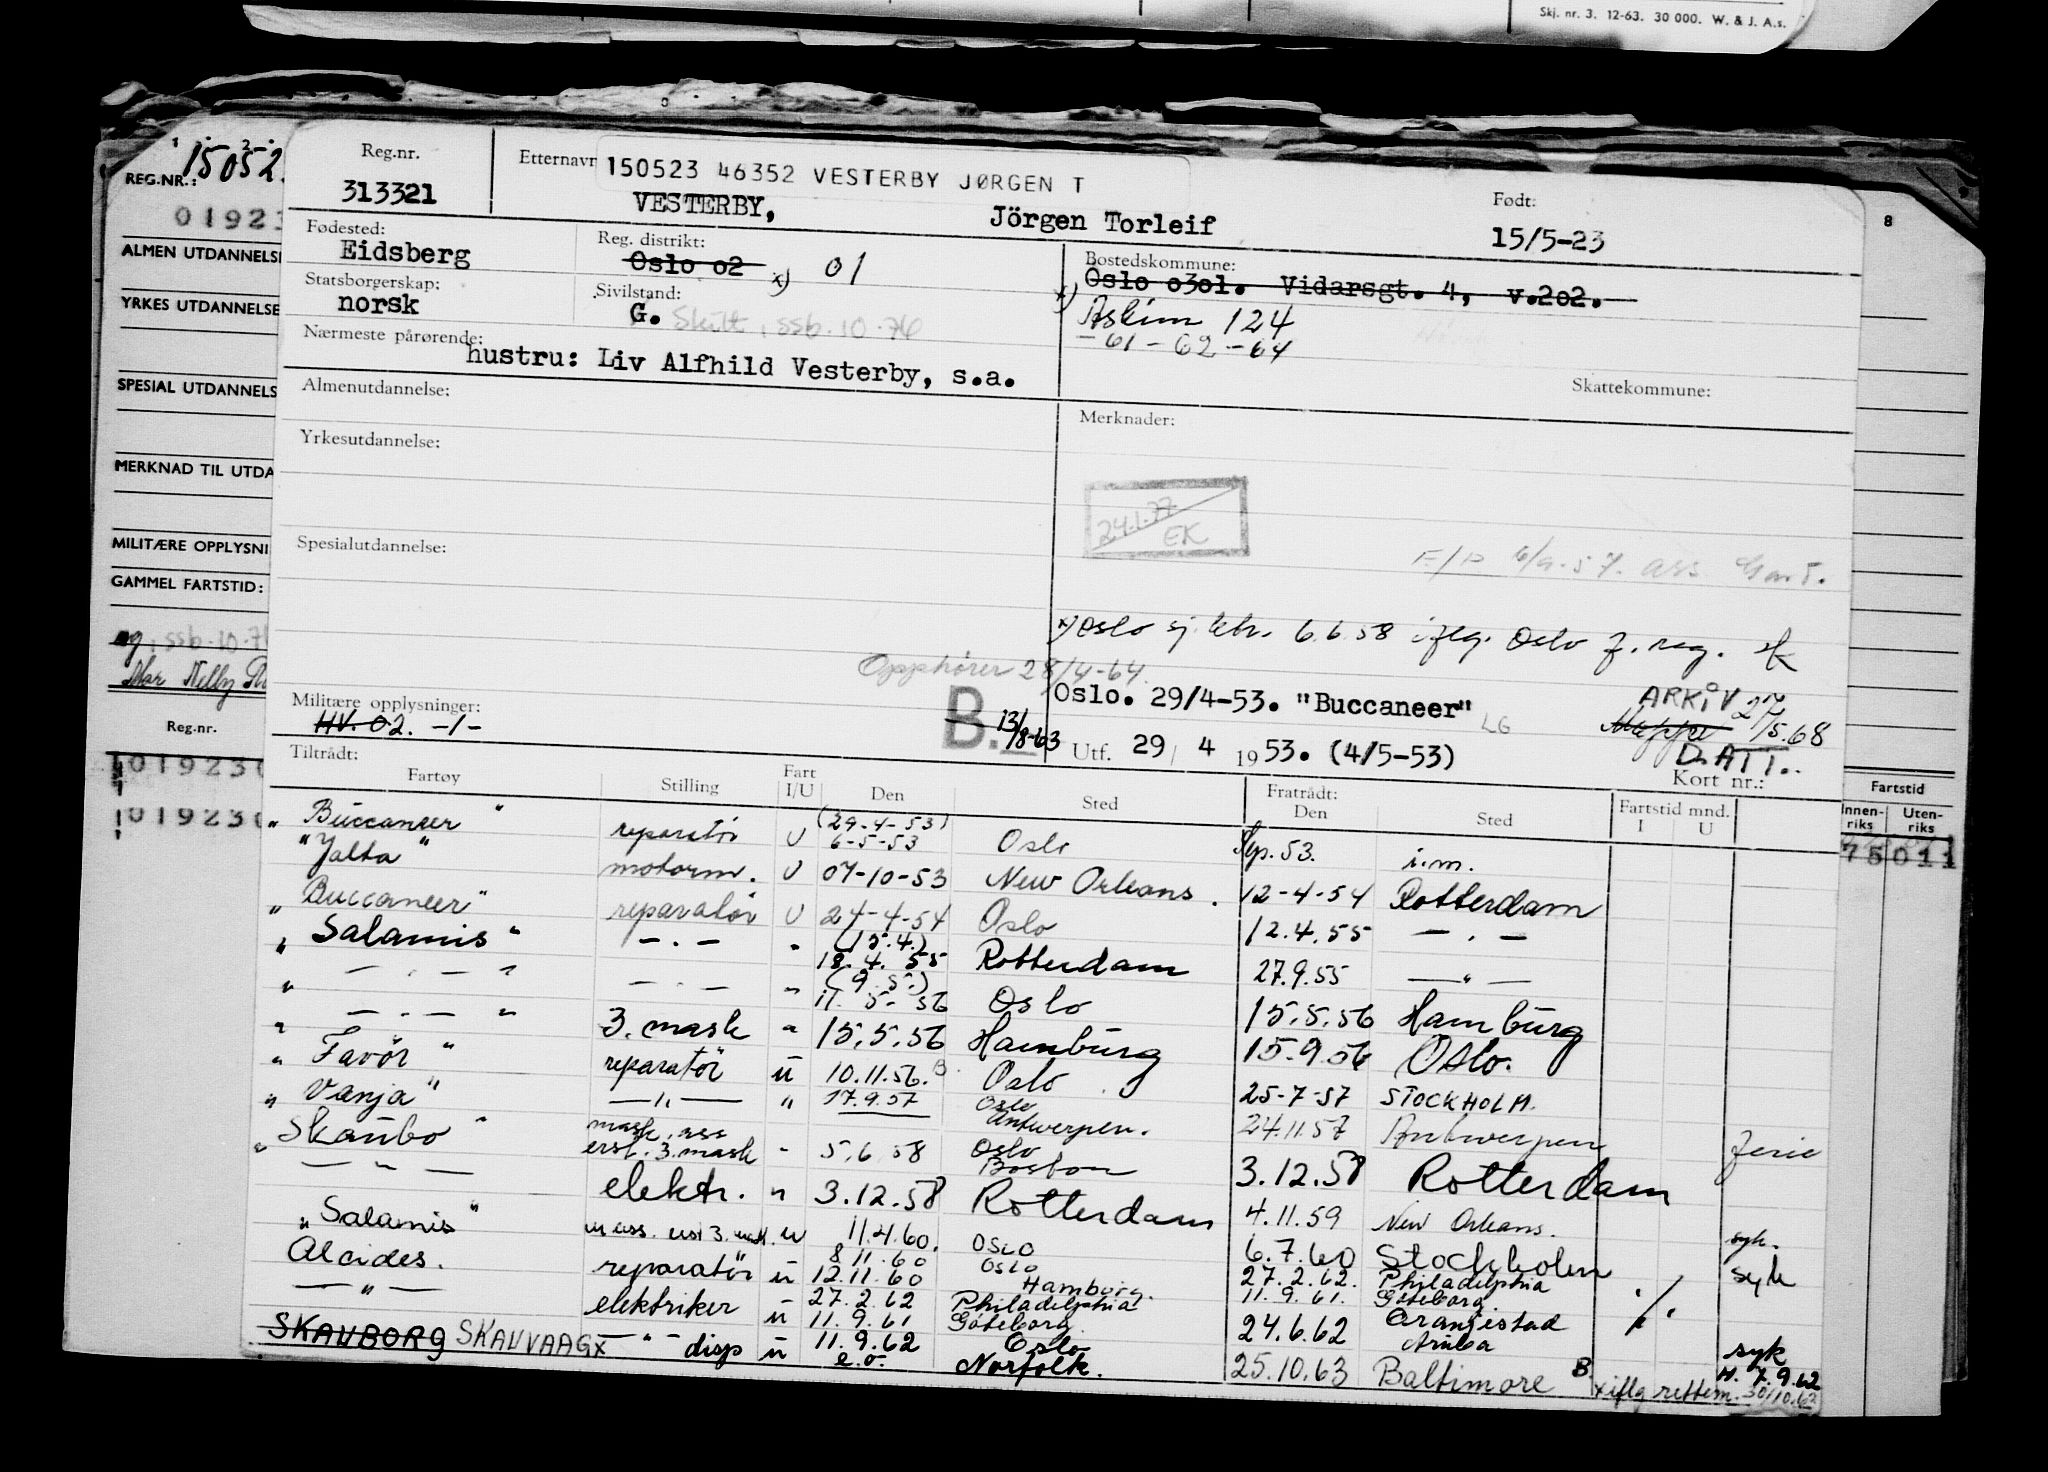 Skj. nr. 3. 12-63. 30 000. W. & J. A.s.
REG.NR.: 15052.
01923
ALMEN UTDANNELSE
YRKES UTDANNELSE
SPESIAL UTDANNELS
MERKNAD TIL UTDA
MILITÆRE OPPLYSNI
GAMMEL FARTSTID:
ssb.10.7
Reg.nr.
019230
019230
8
Fartstid
Innen-riks Uten-riks
75011
Reg.nr. 313321
Etternavn 150523 46352 VESTERBY JØRGEN T
VESTERBY, Jörgen Torleif
Født: 15/5-23
Fødested: Eidsberg
Reg. distrikt: Oslo o2 x) 01
Bostedskommune: Oslo o3o1. Vidarsgt. 4, v.2o2.
x) Askim 124
-61-62-64
Statsborgerskap: norsk
Sivilstand: G. Skilt, ssb.10.76
Nærmeste pårørende: hustru: Liv Alfhild Vesterby, s.a.
Skattekommune:
Almenutdannelse:
Merknader:
Yrkesutdannelse:
24-1-77 EK
Spesialutdannelse:
x) Oslo sj. ktr. 6.6.58 iflg. Oslo f. reg.
Opphører 28/4-64.
Oslo. 29/4-53. "Buccaneer" LG
ARKIV 27/5.68
Mappe
D.ATT..
Militære opplysninger: HV. 02. -1-
B. 13/8-63
Utf. 29/ 4 1953. (4/5-53)
Kort nr.:
Tiltrådt: Fartøy Stilling Fart I/U Den Sted Fratrådt: Den Sted Fartstid mnd. I U
"Buccaneer" reparatör U (29-4-53) 6-5-53 Oslo Sep. 53. i.m.
"Jalta" motorm. U 07-10-53 New Orleans. 12-4-54 Rotterdam
"Buccaneer" reparatör U 24-4-54 Oslo 12.4.55 — . —
"Salamis" — . — " (15.4.) 18.4.55 Rotterdam 27.9.55 — " —
" — . — " — . — " (9.5.) 11.5.56 Oslo 15.5.56 Hamburg
" — . — " 3. mask " 15.5.56 Hamburg 15.9.56 Oslo.
" Favör " reparatör u 10.11.56. Oslo 25-7-57 STOCKHOLM.
" Vanja " — " — " 17.9.57 Oslo Antwerpen. 24.11.57 Antwerpen ferie
" Skaubo " mask. ass erst. 3. mask " 5.6.58 Oslo Boston 3.12.58 Rotterdam
" — " — elektr. " 3.12.58 Rotterdam 4.11.59 New Orleans. syk.
"Salamis" m ass. erst 3. mask. u 11.4.60. OSLO 6.7.60 Stockholm syk
Alcides. reparatör u 8.11.60 12.11.60 Oslo Hamborg. 27.2.62. Philadelphia 11.9.61. Göteborg.
— " — elektriker u 27.2.62 11.9.61 Philadelphia Göteborg 24.6.62 Oranjestad Aruba syk
SKAUBORG SKAUVAAGx — " — disp u 11.9.62 e.o. Oslo Norfolk. 25.10.63 Baltimore B. H. 7.9.62
x iflg rettem. 30/10.62